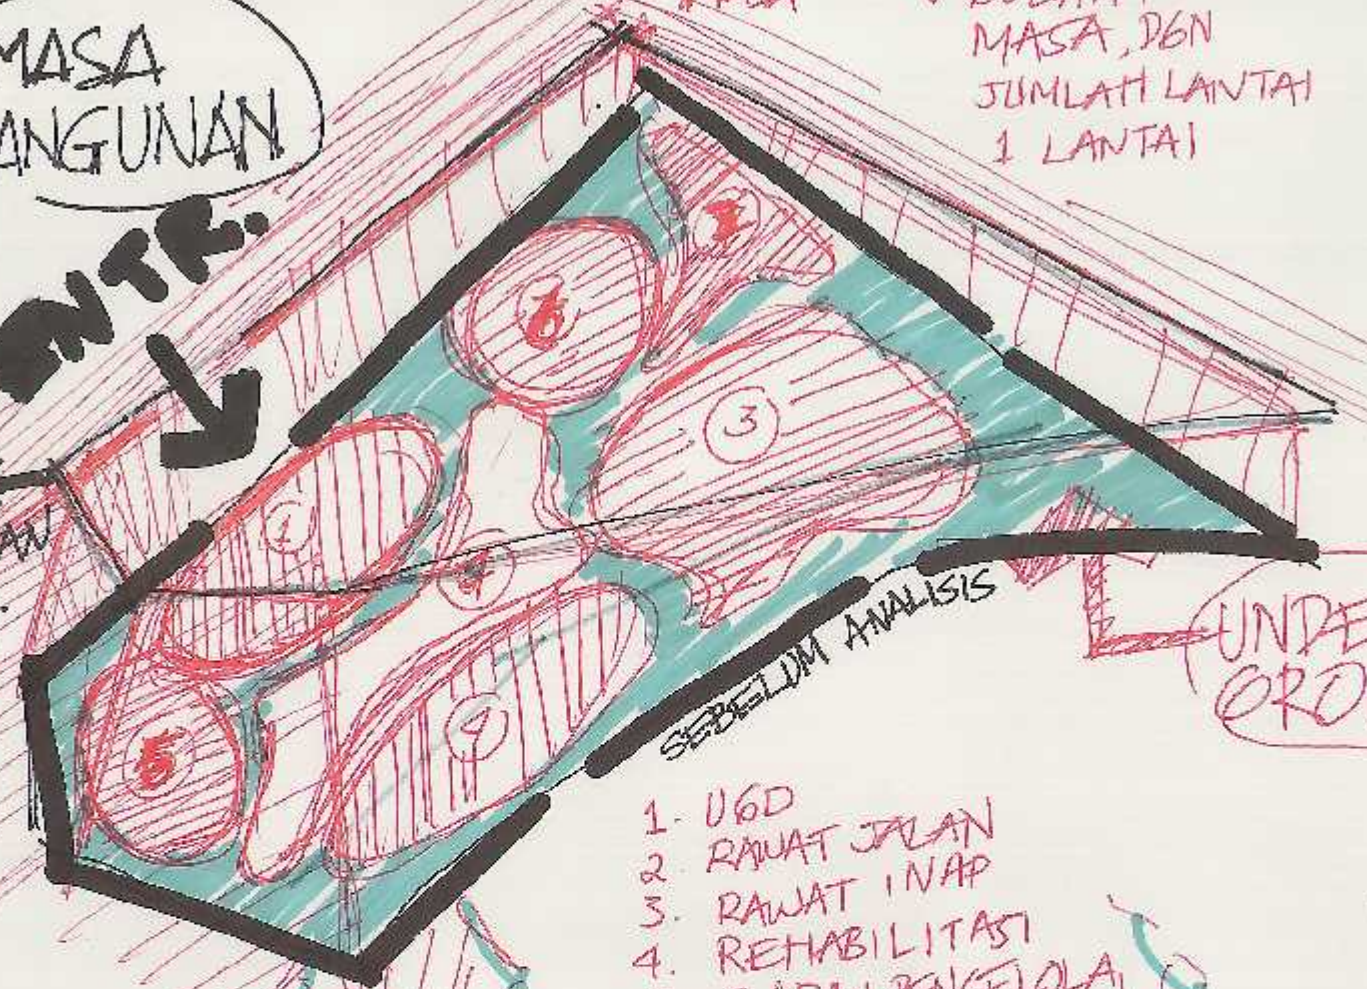 MASA
ANGUNAN
MASA, DGN
JUMLAH LANTAI
1 LANTAI
ENTR.
3
1
4
5
SEBELUM ANALISIS
UNDE
ORO
1. UGD
2. RAWAT JALAN
3. RAWAT INAP
4. REHABILITASI